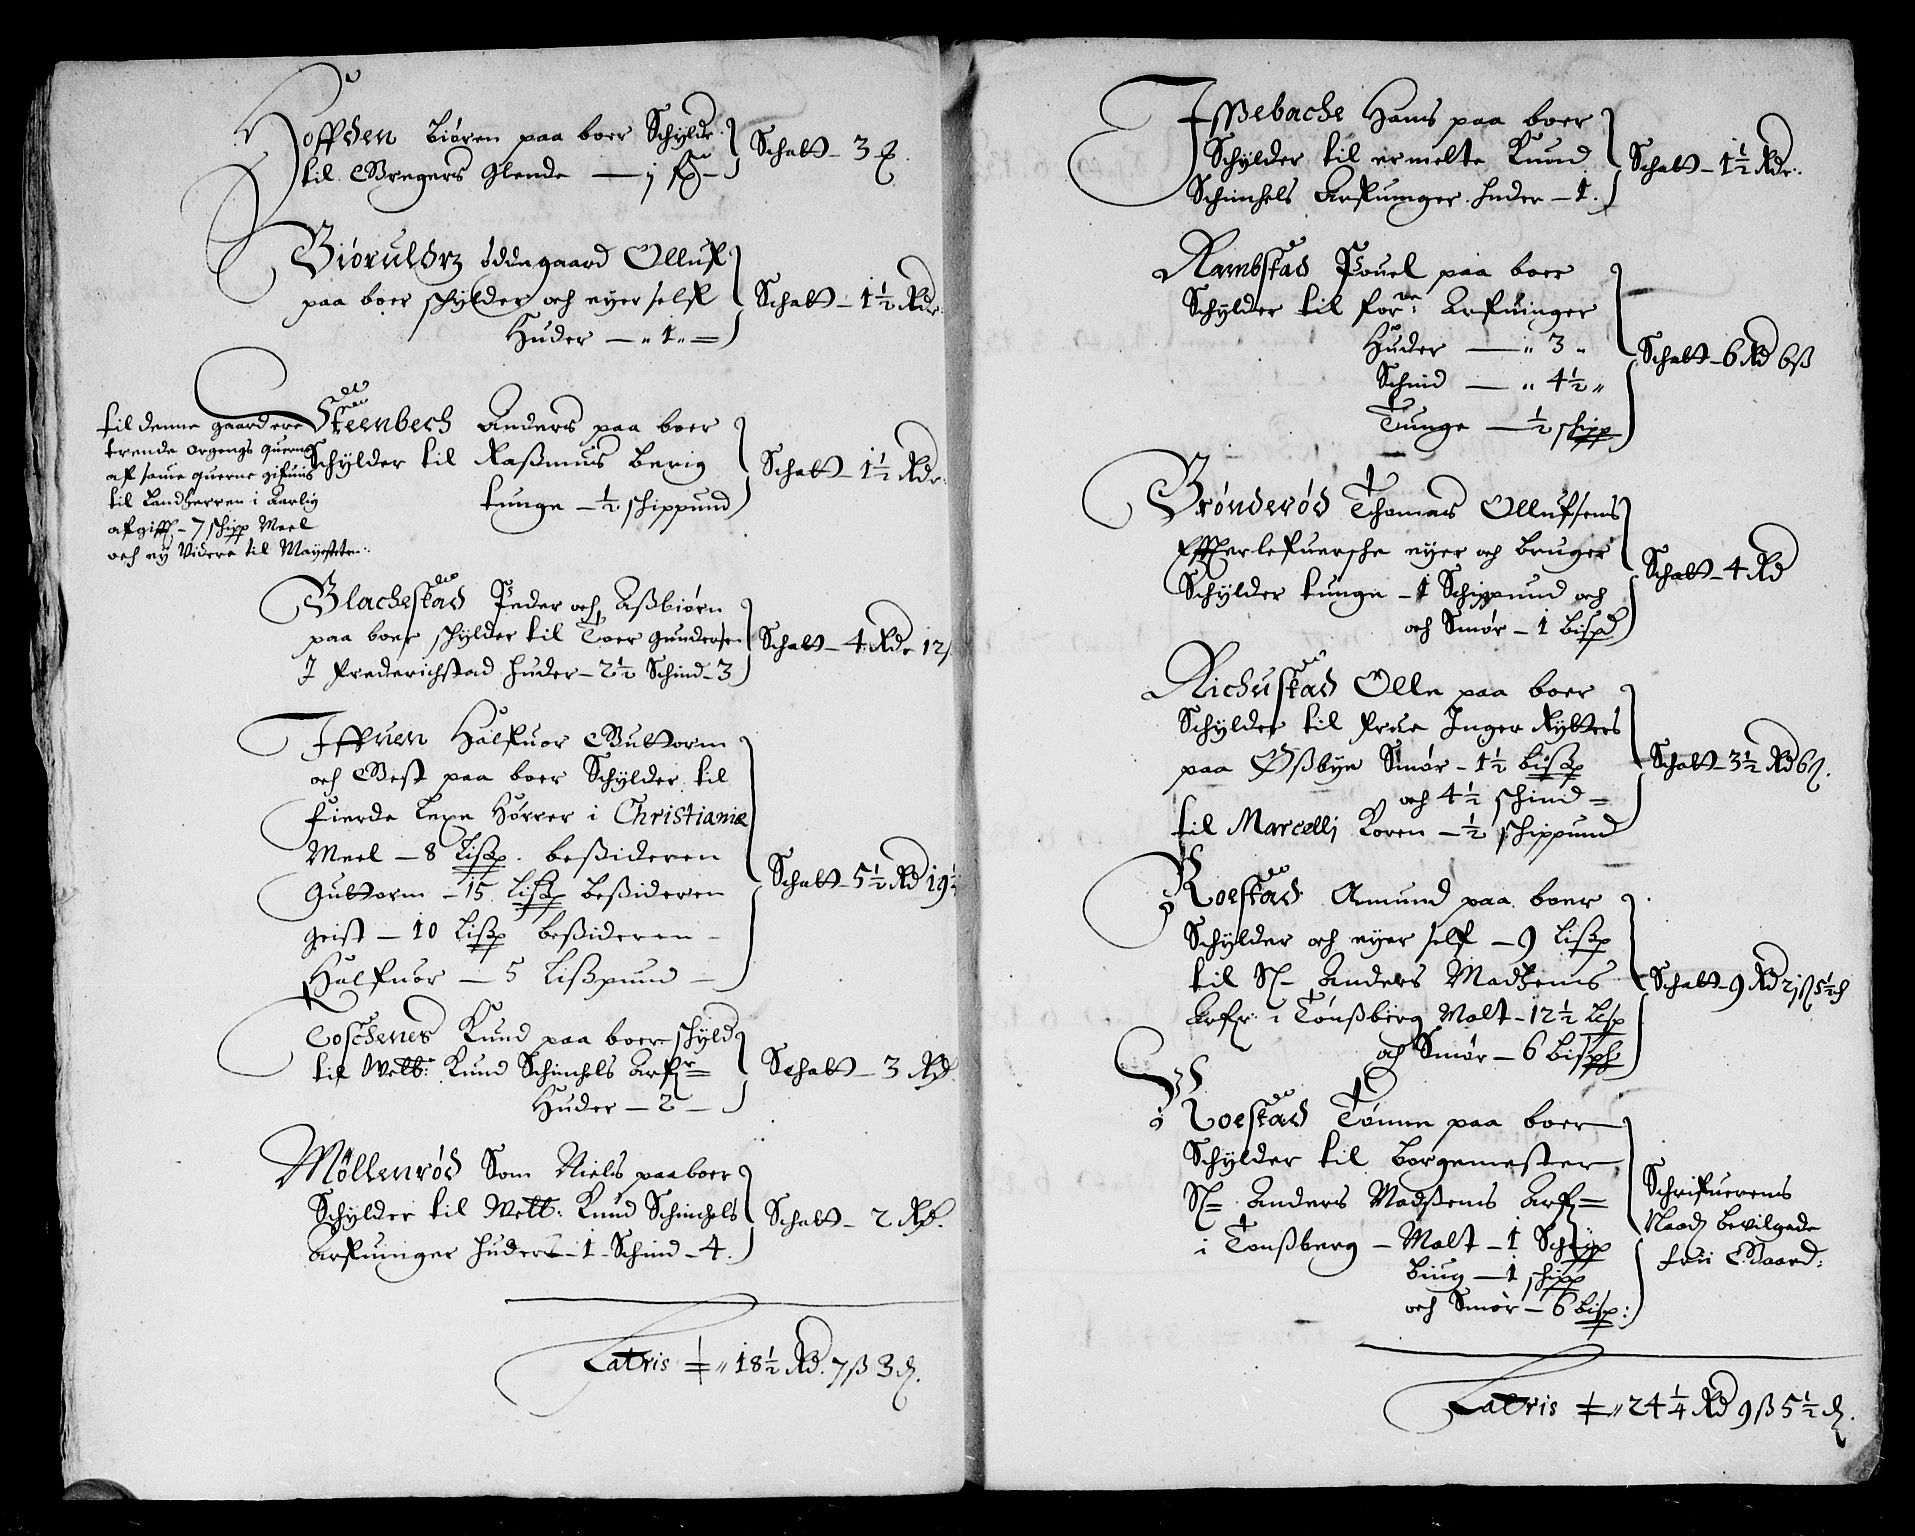 Hoffden Biøren paa boer Schylder
til Gregers Glende — j
Schatt – 3
Biøruldrz ødegaard Olluf
paa boer schylder och eyer self
Huder — „ 1 „ =
Schatt – 1½ Rdr
til denne gaard ere
trende ørgengs querne
af same querne gifuis
til Landherren i Aarlig
afgifft – 7 schipp Meel
och ey Videre til Mayesteten
Steenbech Anders paa boer
Schylder til Rasmus Berig
tunge – ½ schippund
Schatt – 1½ Rdr
Blachestad Peder och Assbiørn
paa boer schylder til Toer Gundersen
J Frederichstad huder – 2½ Schind – 3
Schatt – 4 Rdr 12
Iffuen Halfuor Guttorm
och Gest paa boer Schylder til
fierde Lexe Hørrer i Christianiæ
Meel – 8 Lissp. beßideren
Guttorm – 15 Lissp beßideren
geist – 10 Lissp beßideren –
Halfuor – 5 Lisspund –
Schatt – 5½ Rd 19½
Toschenes Knud paa boer schyld
til Welb: Knud Schinchels Arf =
Huder – 2 –
Schatt – 3 Rd.
Møllerød Som Niels paa boer
Schylder til Welb: Knud Schinchels
Arfuinger huder – 1 Schind – 4.
Schatt – 2 Rd.
Latris „ 18½ Rd. 7 ß 3 d.
Issebache Hans paa boer
Schylder til ermelte Knud
Schinchels Arfuinger huder – 1.
Schatt – 1½ Rdr.
Rambstad Pouel paa boer
Schylder til forne Arfuinger
Huder — „ 3 „
Schind — „ 4½ „
Tunge — ½ schipp
Schatt – 6 Rd 6 ß
Brønderød Thomas Ollufsens
Efterlefuersche eyer och bruger
Schylder tunge – 1 Schippund och
och Smør – 1 Bispd
Schatt – 4 Rd
Richustad Olle paa boer
Schylder til Frue Inger Rytters
paa Øssbye Smør – 1½ Bissp
och 4½ schind =
til Marcellj Koren – ½ schippund
Schatt – 3½ Rd 6 ß.
Roestad Amund paa boer
Schylder och eyer self – 9 Lissp
til Sl– Anders Madsens
Arf: i Tønssberg Malt – 12½ Lisp
och Smør – 6 Bisp
Schatt – 9 Rd 21 ß 5½ d
Roestad Tønne paa boer
Schylder til Borgemester
Sl= Anders Madssens Arf=
i Tønssberg – Malt – 1 Schipp
Biug – 1 schipp
och Smør – 6 Bisp:
Schrifuerens
Naad bevilgede
frii Gaard:
Latris „ 24¼ Rd 9 ß 5½ d.